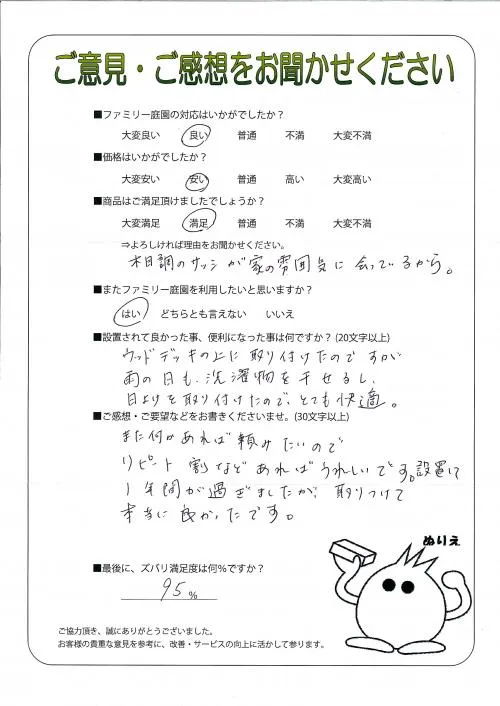 ご意見・ご感想をお聞かせください
■ファミリー庭園の対応はいかがでしたか？
大変良い 良い 普通 不満 大変不満
■価格はいかがでしたか？
大変安い 安い 普通 高い 大変高い
■商品はご満足頂けましたでしょうか？
大変満足 満足 普通 不満 大変不満
⇒よろしければ理由をお聞かせください。
木目調のサッシが家の雰囲気に会っているから。
■またファミリー庭園を利用したいと思いますか？
はい どちらとも言えない いいえ
■設置されて良かった事、便利になった事は何ですか？(20文字以上)
ウッドデッキの上に取り付けたのですが
雨の日も、洗濯物を干せるし、
日よけを取り付けたので、とても快適。
■ご感想・ご要望などをお書きくださいませ。(30文字以上)
また何かあれば頼みたいので
リピート割などあればうれしいです。設置して
1年間が過ぎましたが、取りつけて
本当に良かったです。
ぬりえ
■最後に、ズバリ満足度は何％ですか？
95%
ご協力頂き、誠にありがとうございました。
お客様の貴重な意見を参考に、改善・サービスの向上に活かして参ります。